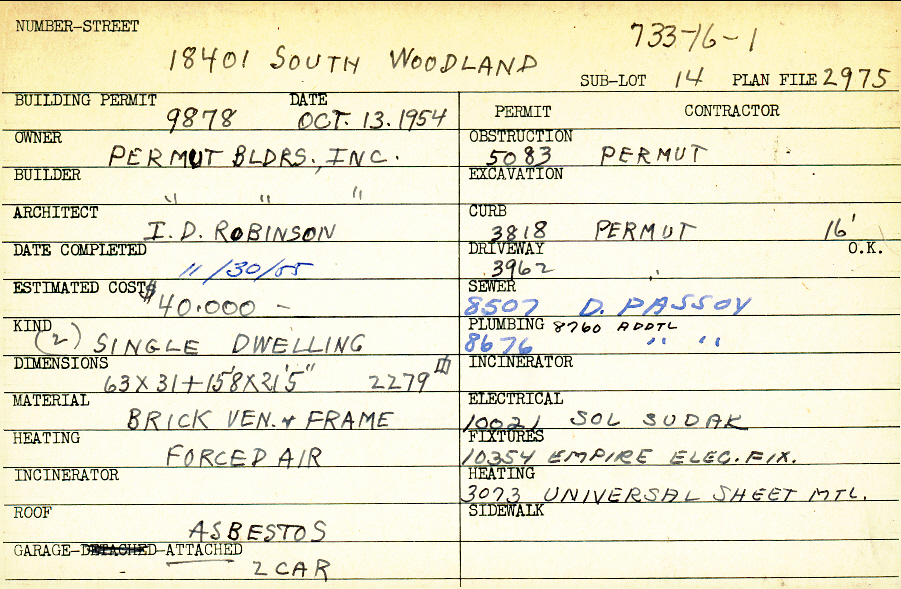 NUMBER-STREET
733-16-1
18401 SOUTH WOODLAND
SUB-LOT 14 PLAN FILE 2975
BUILDING PERMIT DATE
9878 OCT. 13. 1954
OWNER
PERMUT BLDRS., INC.
BUILDER
" " "
ARCHITECT
I. D. ROBINSON
DATE COMPLETED
11/30/55
ESTIMATED COST $
$40.000 -
KIND
(2) SINGLE DWELLING
DIMENSIONS
63 X 31 + 15'8 X 21'5" 2279
MATERIAL
BRICK VEN. + FRAME
HEATING
FORCED AIR
INCINERATOR
ROOF
ASBESTOS
GARAGE-DETACHED-ATTACHED
2 CAR
PERMIT CONTRACTOR
OBSTRUCTION
5083 PERMUT
EXCAVATION
CURB
3818 PERMUT 16'
DRIVEWAY O.K.
3962 "
SEWER
8507 D. PASSOV
PLUMBING 8760 ADDTL
8676 " "
INCINERATOR
ELECTRICAL
10021 SOL SUDAK
FIXTURES
10354 EMPIRE ELEC. FIX.
HEATING
3073 UNIVERSAL SHEET MTL.
SIDEWALK